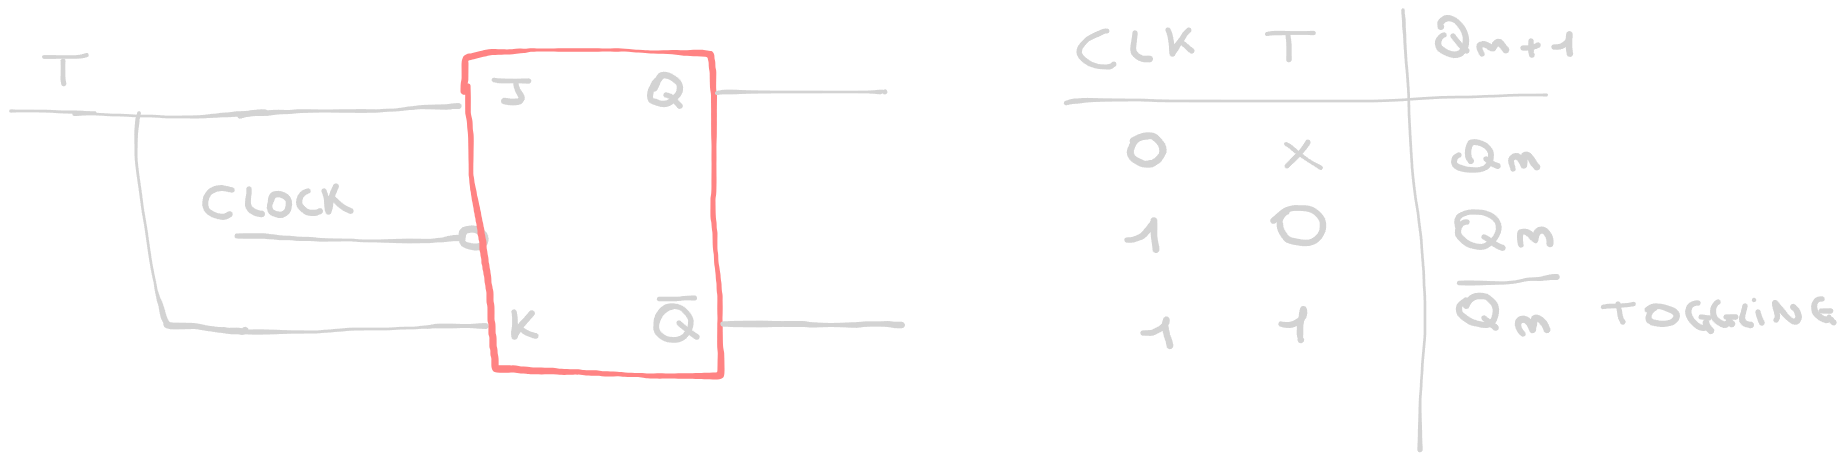 T
J Q
CLOCK
K Q̅
CLK T Qm+1
0 X Qm
1 0 Qm
1 1 Q̅m TOGGLING